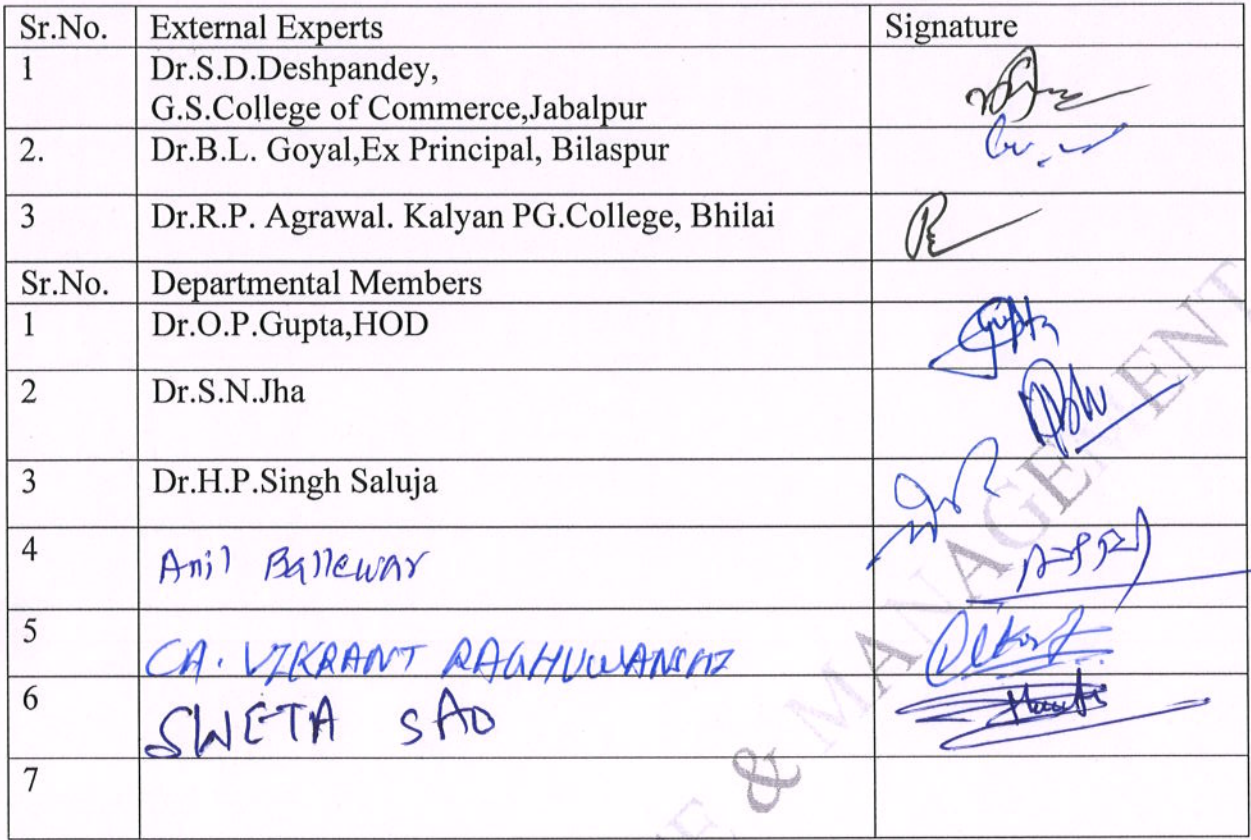 Sr.No. External Experts Signature
1 Dr.S.D.Deshpandey,
G.S.College of Commerce,Jabalpur
2. Dr.B.L. Goyal,Ex Principal, Bilaspur
3 Dr.R.P. Agrawal. Kalyan PG.College, Bhilai
Sr.No. Departmental Members
1 Dr.O.P.Gupta,HOD Gupta
2 Dr.S.N.Jha
3 Dr.H.P.Singh Saluja
4 Anil Ballewar
5 CA. VIKRANT RAGHUWANSHI
6 SWETA SAO
7
& MANAGEMENT